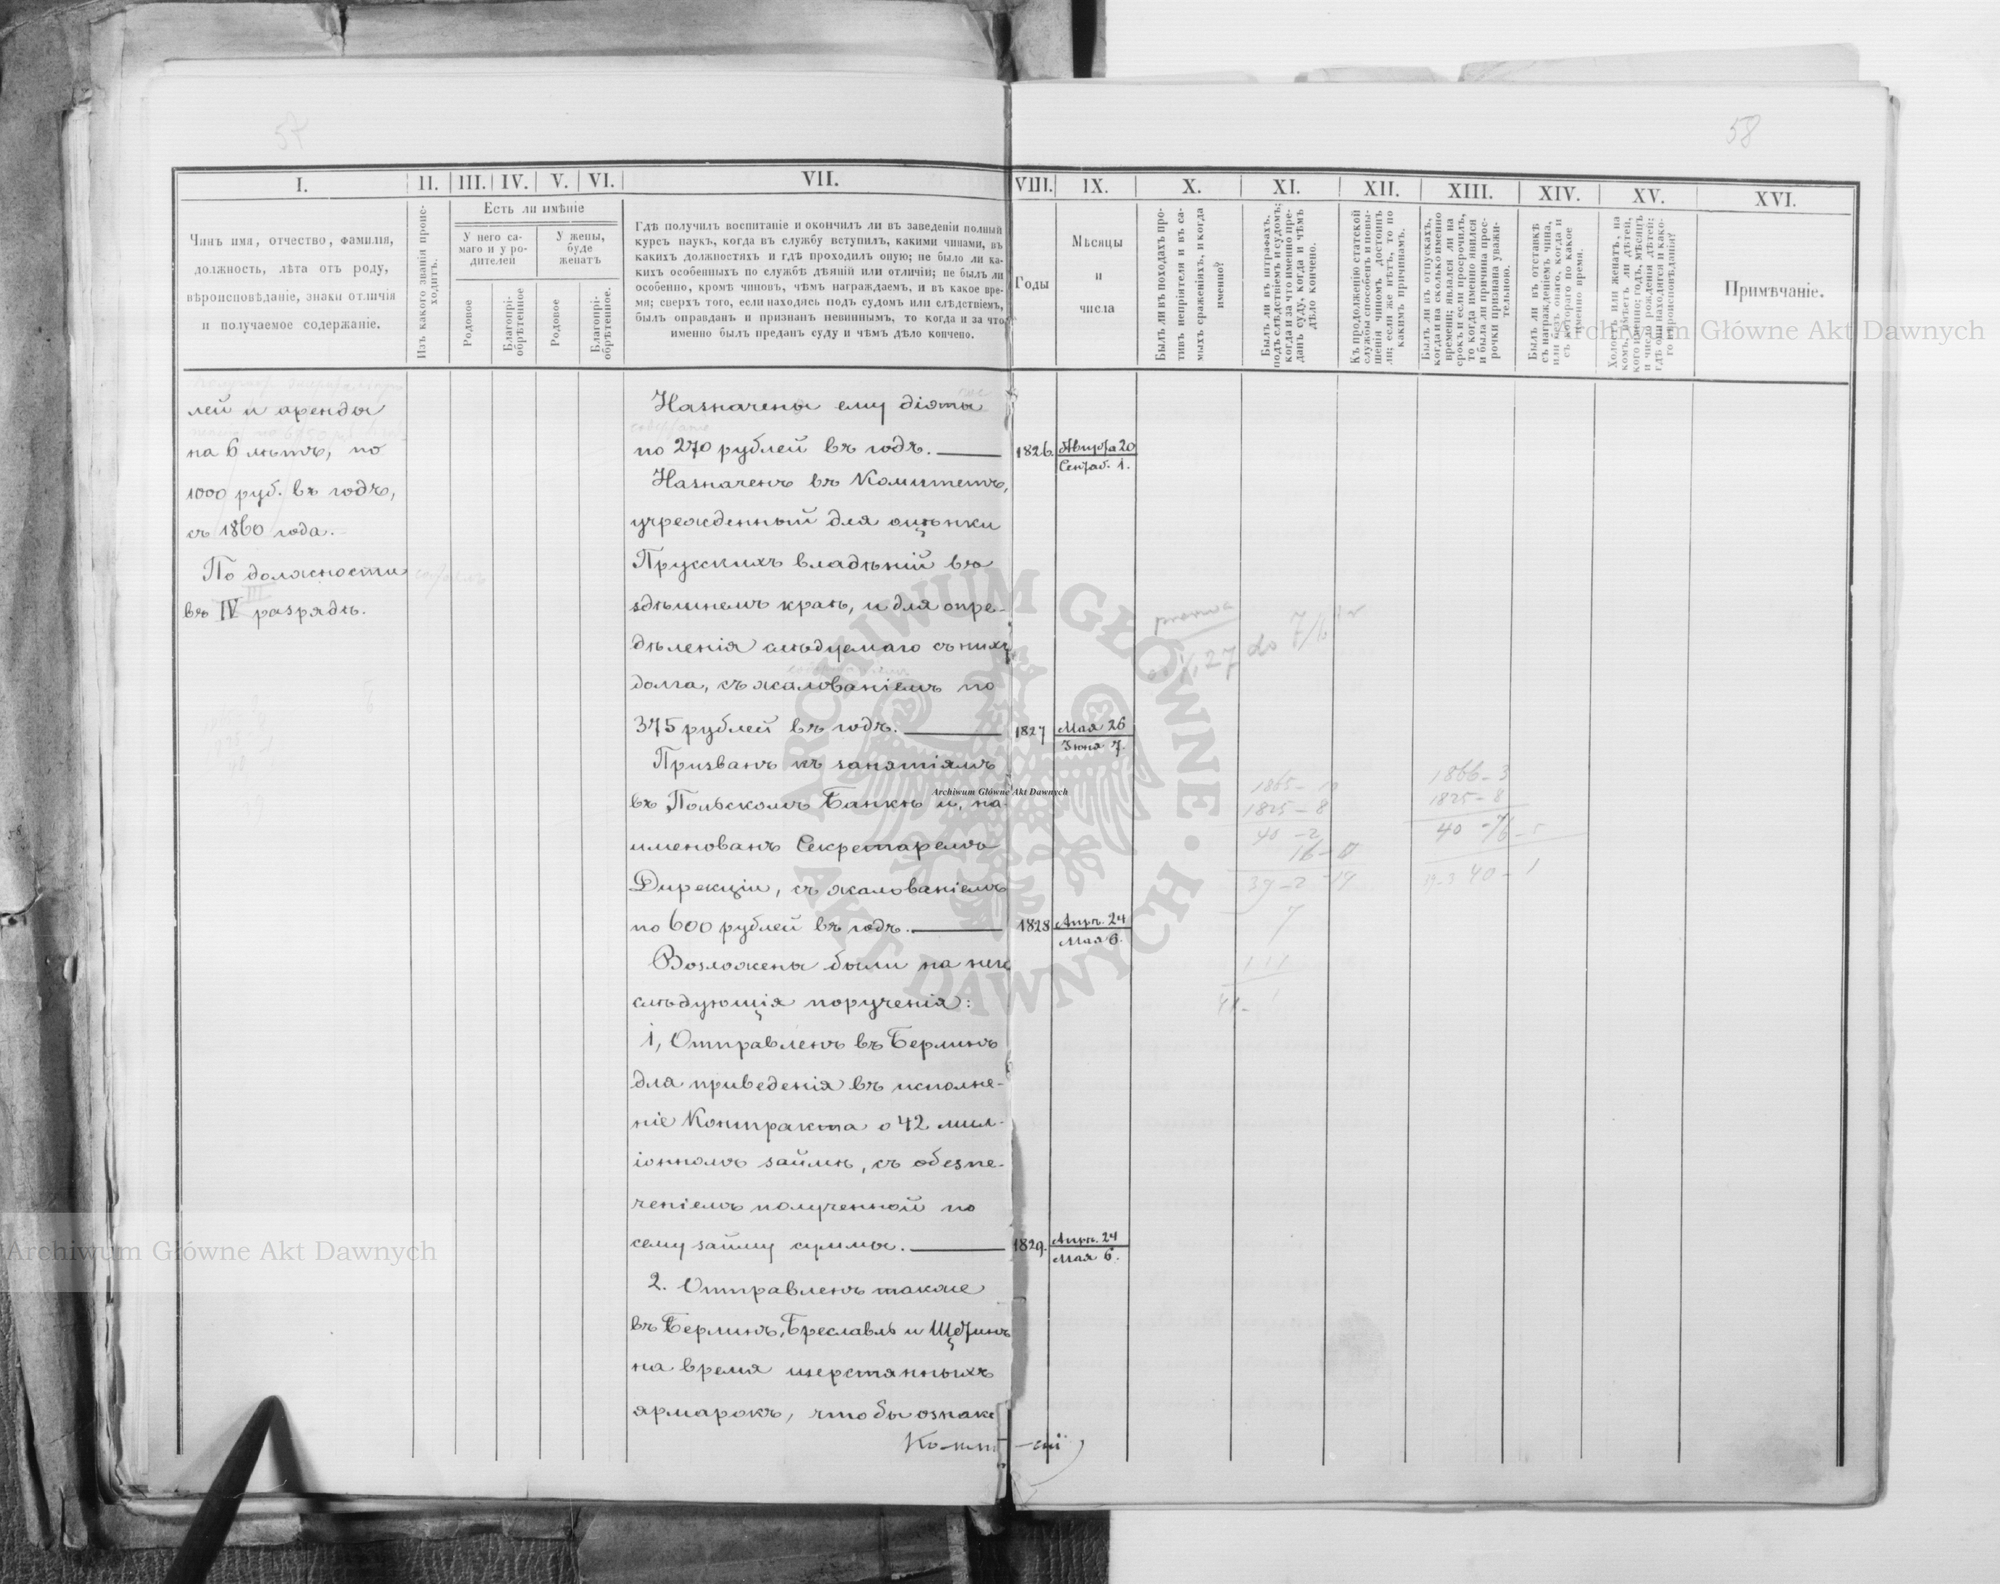 57
58
I.
II.
III.
IV.
V.
VI.
VII.
VIII.
IX.
X.
XI.
XII.
XIII.
XIV.
XV.
XVI.
Чинъ имя, отчество, фамилія,
должность, лѣта отъ роду,
вѣроисповѣданіе, знаки отличія
и получаемое содержаніе.
Изъ какого званія проис-
ходитъ.
Есть ли имѣніе
У него са-
маго и у ро-
дителей
У жены,
буде
женатъ
Родовое
Благопрі-
обрѣтенное
Родовое
Благопрі-
обрѣтенное.
Гдѣ получилъ воспитаніе и окончилъ ли въ заведеніи полный
курсъ наукъ, когда въ службу вступилъ, какими чинами, въ
какихъ должностяхъ и гдѣ проходилъ оную; не было ли ка-
кихъ особенныхъ по службѣ дѣяній или отличій; не былъ ли
особенно, кромѣ чиновъ, чѣмъ награждаемъ, и въ какое вре-
мя; сверхъ того, если находясь подъ судомъ или слѣдствіемъ,
былъ оправданъ и признанъ невиннымъ, то когда и за что
именно былъ преданъ суду и чѣмъ дѣло кончено.
Годы
Мѣсяцы
и
числа
Былъ ли въ походахъ про-
тивъ непріятеля и въ са-
мыхъ сраженіяхъ, и когда
именно?
Былъ ли въ штрафахъ,
подъ слѣдствіемъ и судомъ;
когда и за что именно пре-
данъ суду, когда и чѣмъ
дѣло кончено.
Къ продолженію статской
службы способенъ и повы-
шенія чиномъ достоинъ
ли; если же нѣтъ, то по
какимъ причинамъ.
Былъ ли въ отпускахъ,
когда и на сколько именно
времени; являлся ли на
срокъ и если просрочилъ,
то когда именно явился
и была ли причина прос-
рочки признана уважи-
тельною.
Былъ ли въ отставкѣ
съ награжденіемъ чина,
или безъ онаго, когда и
съ котораго по какое
именно время.
Холостъ или женатъ, на
комъ, имѣетъ ли дѣтей,
кого именно; годъ, мѣсяцъ
и число рожденія дѣтей;
гдѣ они находятся и како-
го вѣроисповѣданія?
Примѣчаніе.
лей и аренды
на 6 лѣтъ, по
1000 руб. въ годъ,
съ 1860 года.
По должности
III
въ IV разрядѣ.
Назначены ему діэты
по 270 рублей въ годъ.
1826.
Августа 20
Сентяб. 1.
Назначенъ въ Комитетъ,
учрежденный для оцѣнки
Прусскихъ владѣній въ
здѣшнемъ краѣ, и для опре-
дѣленія слѣдуемаго съ нихъ
долга, съ жалованіемъ по
375 рублей въ годъ.
1827
Мая 26
Іюня 7.
Призванъ къ занятіямъ
въ Польскомъ Банкѣ и, на-
именованъ Секретаремъ
Дирекціи, съ жалованіемъ
по 600 рублей въ годъ.
1828
Апр. 24
Мая 6.
Возложены были на него
слѣдующія порученія:
1, Отправленъ въ Берлинъ
для приведенія въ исполне-
ніе Контракта о 42 мил-
ліонномъ займѣ, съ обезпе-
ченіемъ полученной по
сему займу суммы.
1829.
Апр. 24
Мая 6.
2. Отправленъ также
въ Берлинъ, Бреславль и Щетинъ
на время шерстянныхъ
ярмарокъ, чтобы ознако
27 do 7/6
1865 -
1825 - 8
40 - 2
16 -
39 - 2 - 19
7
1866 - 3
1825 - 8
40
40 - 1
Archiwum Główne Akt Dawnych
Archiwum Główne Akt Dawnych
Archiwum Główne Akt Dawnych
ARCHIWUM GŁÓWNE · AKT DAWNYCH ·